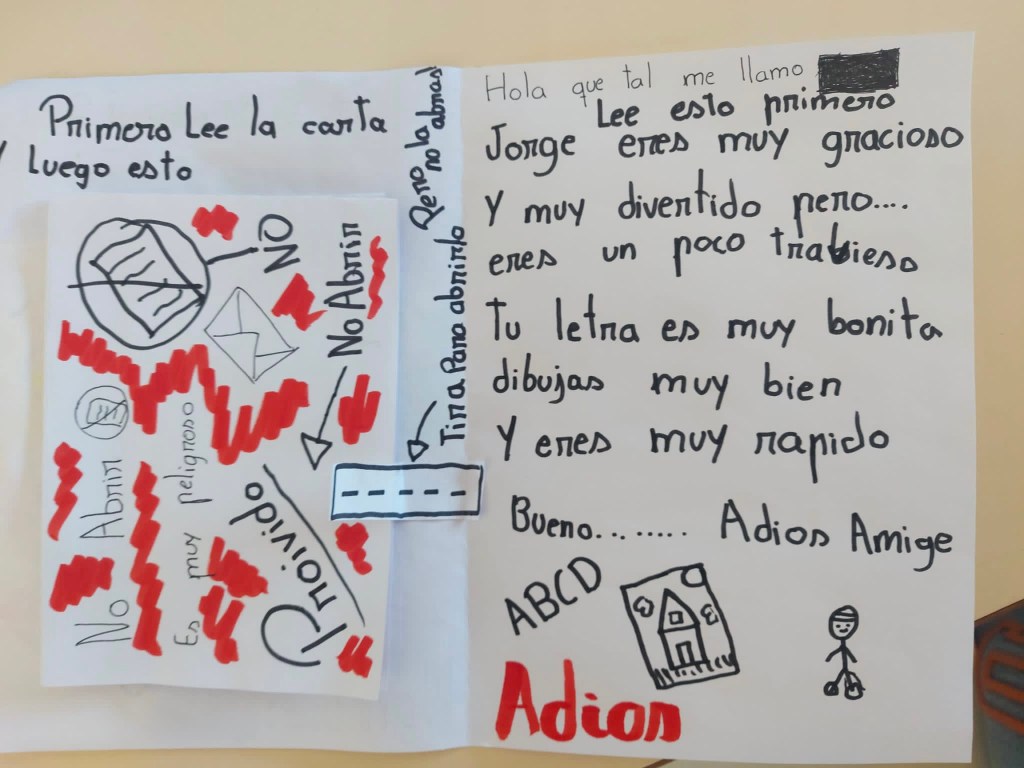 Primero Lee la carta
Y luego esto
Tira Para abrirlo
Pero no la abras!
NO
No Abrir
No Abrir
Es muy peligroso
Proivido
Hola que tal me llamo
Lee esto primero
Jorge eres muy gracioso
Y muy divertido pero....
eres un poco trabieso
Tu letra es muy bonita
dibujas muy bien
Y eres muy rapido
Bueno........ Adios Amige
ABCD
Adios